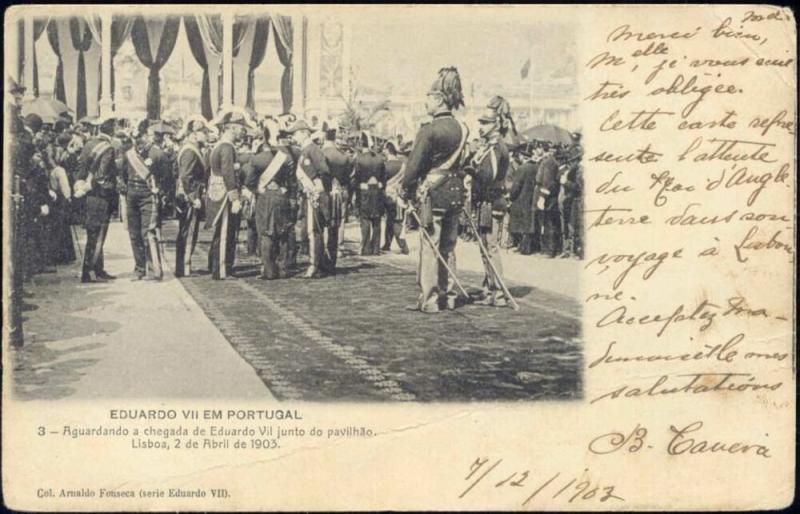 EDUARDO VII EM PORTUGAL
3 — Aguardando a chegada de Eduardo VII junto do pavilhão.
Lisboa, 2 de Abril de 1903.
Col. Arnaldo Fonseca (serie Eduardo VII).
Merci bien,
Melle, je vous suis
très obligée.
Cette carte repre
sente l'attente
du Roi d'Angle
terre dans son
voyage à Lisbon
ne.
Acceptez Ma-
demoiselle mes
salutations
B.
7/12/1903